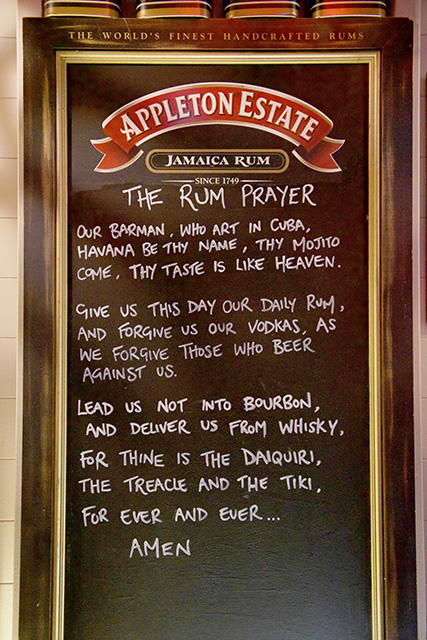 THE WORLD'S FINEST HANDCRAFTED RUMS
APPLETON ESTATE
JAMAICA RUM
SINCE 1749
THE RUM PRAYER
OUR BARMAN, WHO ART IN CUBA,
HAVANA BE THY NAME, THY MOJITO
COME, THY TASTE IS LIKE HEAVEN.
GIVE US THIS DAY OUR DAILY RUM,
AND FORGIVE US OUR VODKAS, AS
WE FORGIVE THOSE WHO BEER
AGAINST US.
LEAD US NOT INTO BOURBON,
AND DELIVER US FROM WHISKY,
FOR THINE IS THE DAIQUIRI,
THE TREACLE AND THE TIKI,
FOR EVER AND EVER...
AMEN